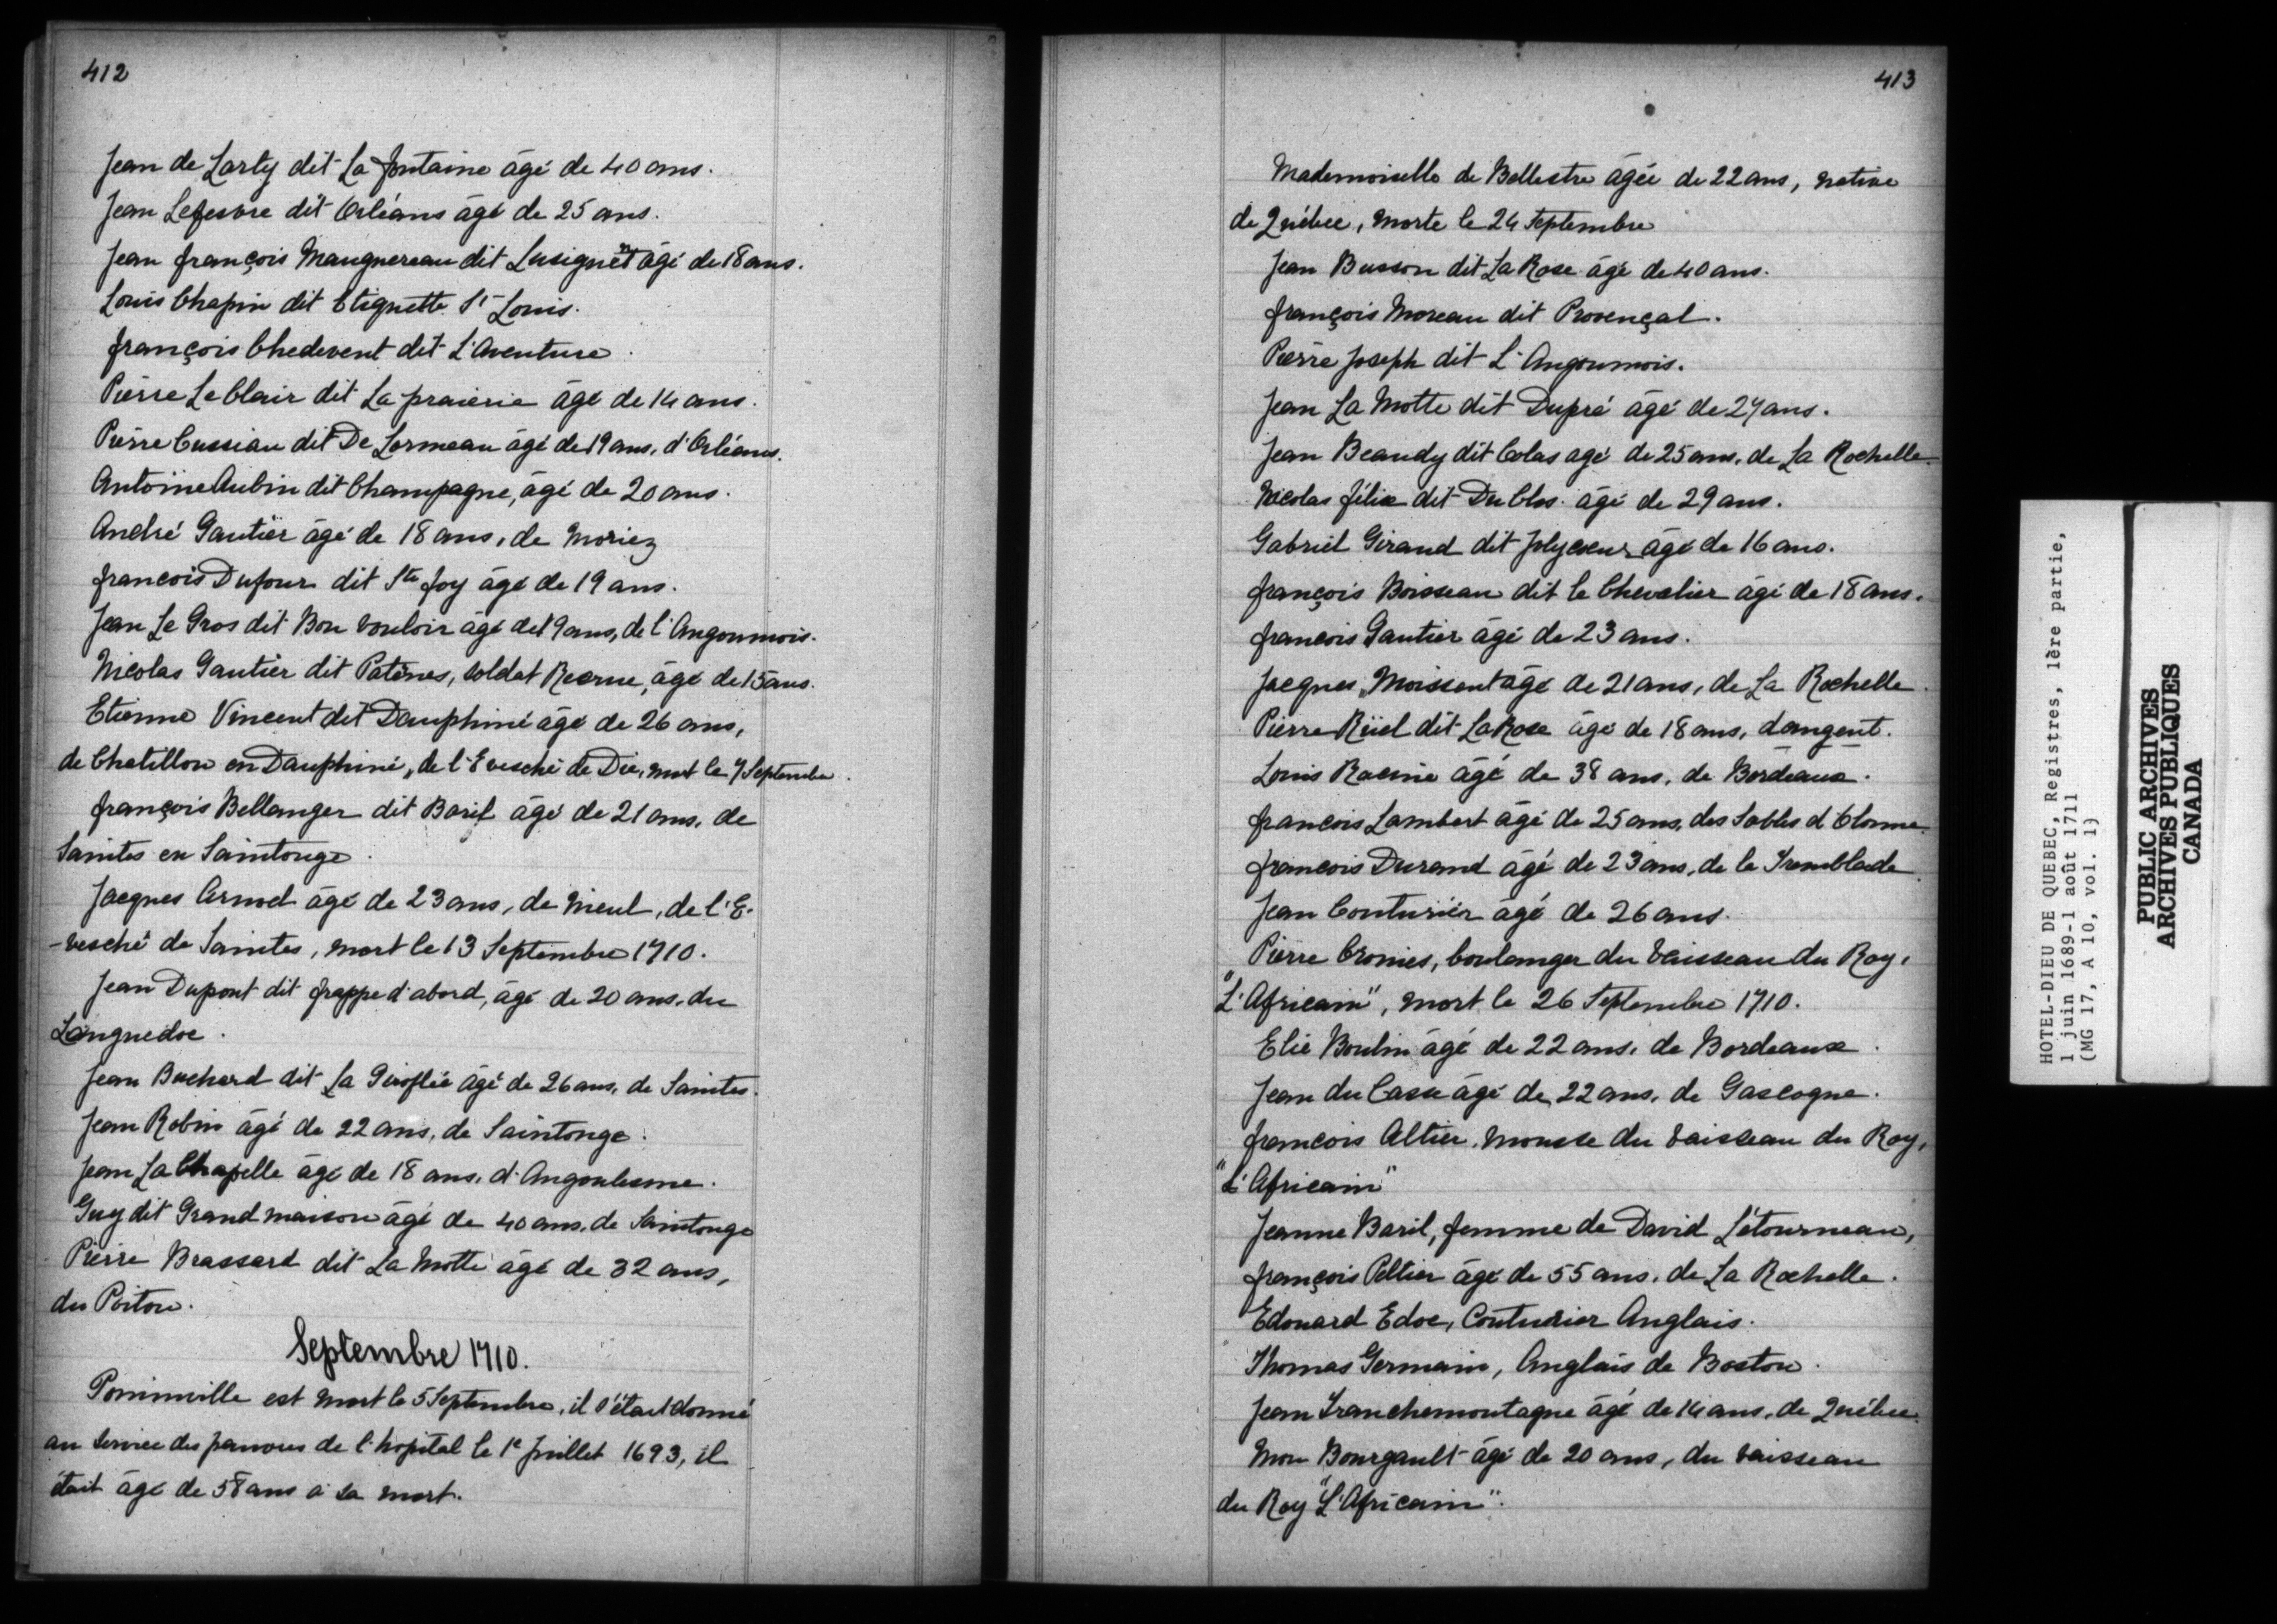 412
Jean de Larty dit La fontaine âgé de 40 ans.
Jean Lefesvre dit Orléans âgé de 25 ans.
Jean françois Maugnereau dit Lusignent âgé de 18 ans.
Louis Chapin dit Etignette St Louis.
françois Chedevent dit L'Aventure.
Pierre Le Clair dit La prairie âgé de 14 ans.
Pierre Cussiau dit De Lormeau âgé de 19 ans, d'Orléans.
Antoine Aubin dit Champagne, âgé de 20 ans.
André Gautier âgé de 18 ans, de Moriez
francois Dufour dit Ste foy âgé de 19 ans.
Jean Le Gros dit Bon Vouloir âgé de 19 ans, de l'Angoumois.
Nicolas Gautier dit Patènes, soldat Recrue, âgé de 15 ans.
Etienne Vincent dit Dauphiné âgé de 26 ans,
de Chatillon en Dauphiné, de l'Evesché de Die, mort le 7 Septembre.
françois Bellanger dit Baril âgé de 21 ans, de
Saintes en Saintonge.
Jacques Armel âgé de 23 ans, de Nieul, de l'E-
-vesché de Saintes, mort le 13 Septembre 1710.
Jean Dupont dit frappe d'abord, âgé de 20 ans, du
Languedoc.
Jean Buchard dit La Giroflée âgé de 26 ans, de Saintes.
Jean Robin âgé de 22 ans, de Saintonge.
Jean La Chapelle âgé de 18 ans, d'Angoulesme.
Guy dit Grandmaison âgé de 40 ans, de Saintonge
Pierre Brassard dit La Motte âgé de 32 ans,
du Poitou.
Septembre 1710.
Pominville est mort le 5 Septembre, il s'était donné
au service des pauvres de l'hopital le 1e Juillet 1693, il
était âgé de 58 ans à sa mort.
413
Mademoiselle de Bellestre âgée de 22 ans, native
de Québec, morte le 24 Septembre
Jean Busson dit La Rose âgé de 40 ans.
françois Moreau dit Provençal.
Pierre Joseph dit L'Angoumois.
Jean La Motte dit Dupré âgé de 27 ans.
Jean Beaudy dit Colas agé de 25 ans, de La Rochelle.
Nicolas félix dit Du Clos âgé de 29 ans.
Gabriel Giraud dit Jolycoeur âgé de 16 ans.
françois Boisseau dit le Chevalier âgé de 18 ans.
francois Gautier âgé de 23 ans.
Jacques Moissent âgé de 21 ans, de La Rochelle.
Pierre Rüel dit LaRose âgé de 18 ans, dangent.
Louis Racine âgé de 38 ans, de Bordeaux.
francois Lambert âgé de 25 ans, des Sables d'Olonne.
francois Durand âgé de 23 ans, de la Tremblade.
Jean Couturier âgé de 26 ans.
Pierre Cronies, boulanger du Vaisseau du Roy,
"L'Africain", mort le 26 Septembre 1710.
Elie Boulin âgé de 22 ans, de Bordeaux.
Jean du Casse âgé de 22 ans, de Gascogne.
francois Altier, mousse du Vaisseau du Roy,
"L'Africain"
Jeanne Baril, femme de David Létourneau,
françois Peltier âgé de 55 ans, de La Rochelle.
Edouard Edoe, Couturier Anglais.
Thomas Germain, Anglais de Boston.
Jean Tranchemontagne âgé de 14 ans, de Québec.
Mon Bourgault âgé de 20 ans, du vaisseau
du Roy "L'Africain".
HOTEL-DIEU DE QUEBEC, Registres, 1ère partie,
1 juin 1689-1 août 1711
(MG 17, A 10, vol. 1)
PUBLIC ARCHIVES
ARCHIVES PUBLIQUES
CANADA